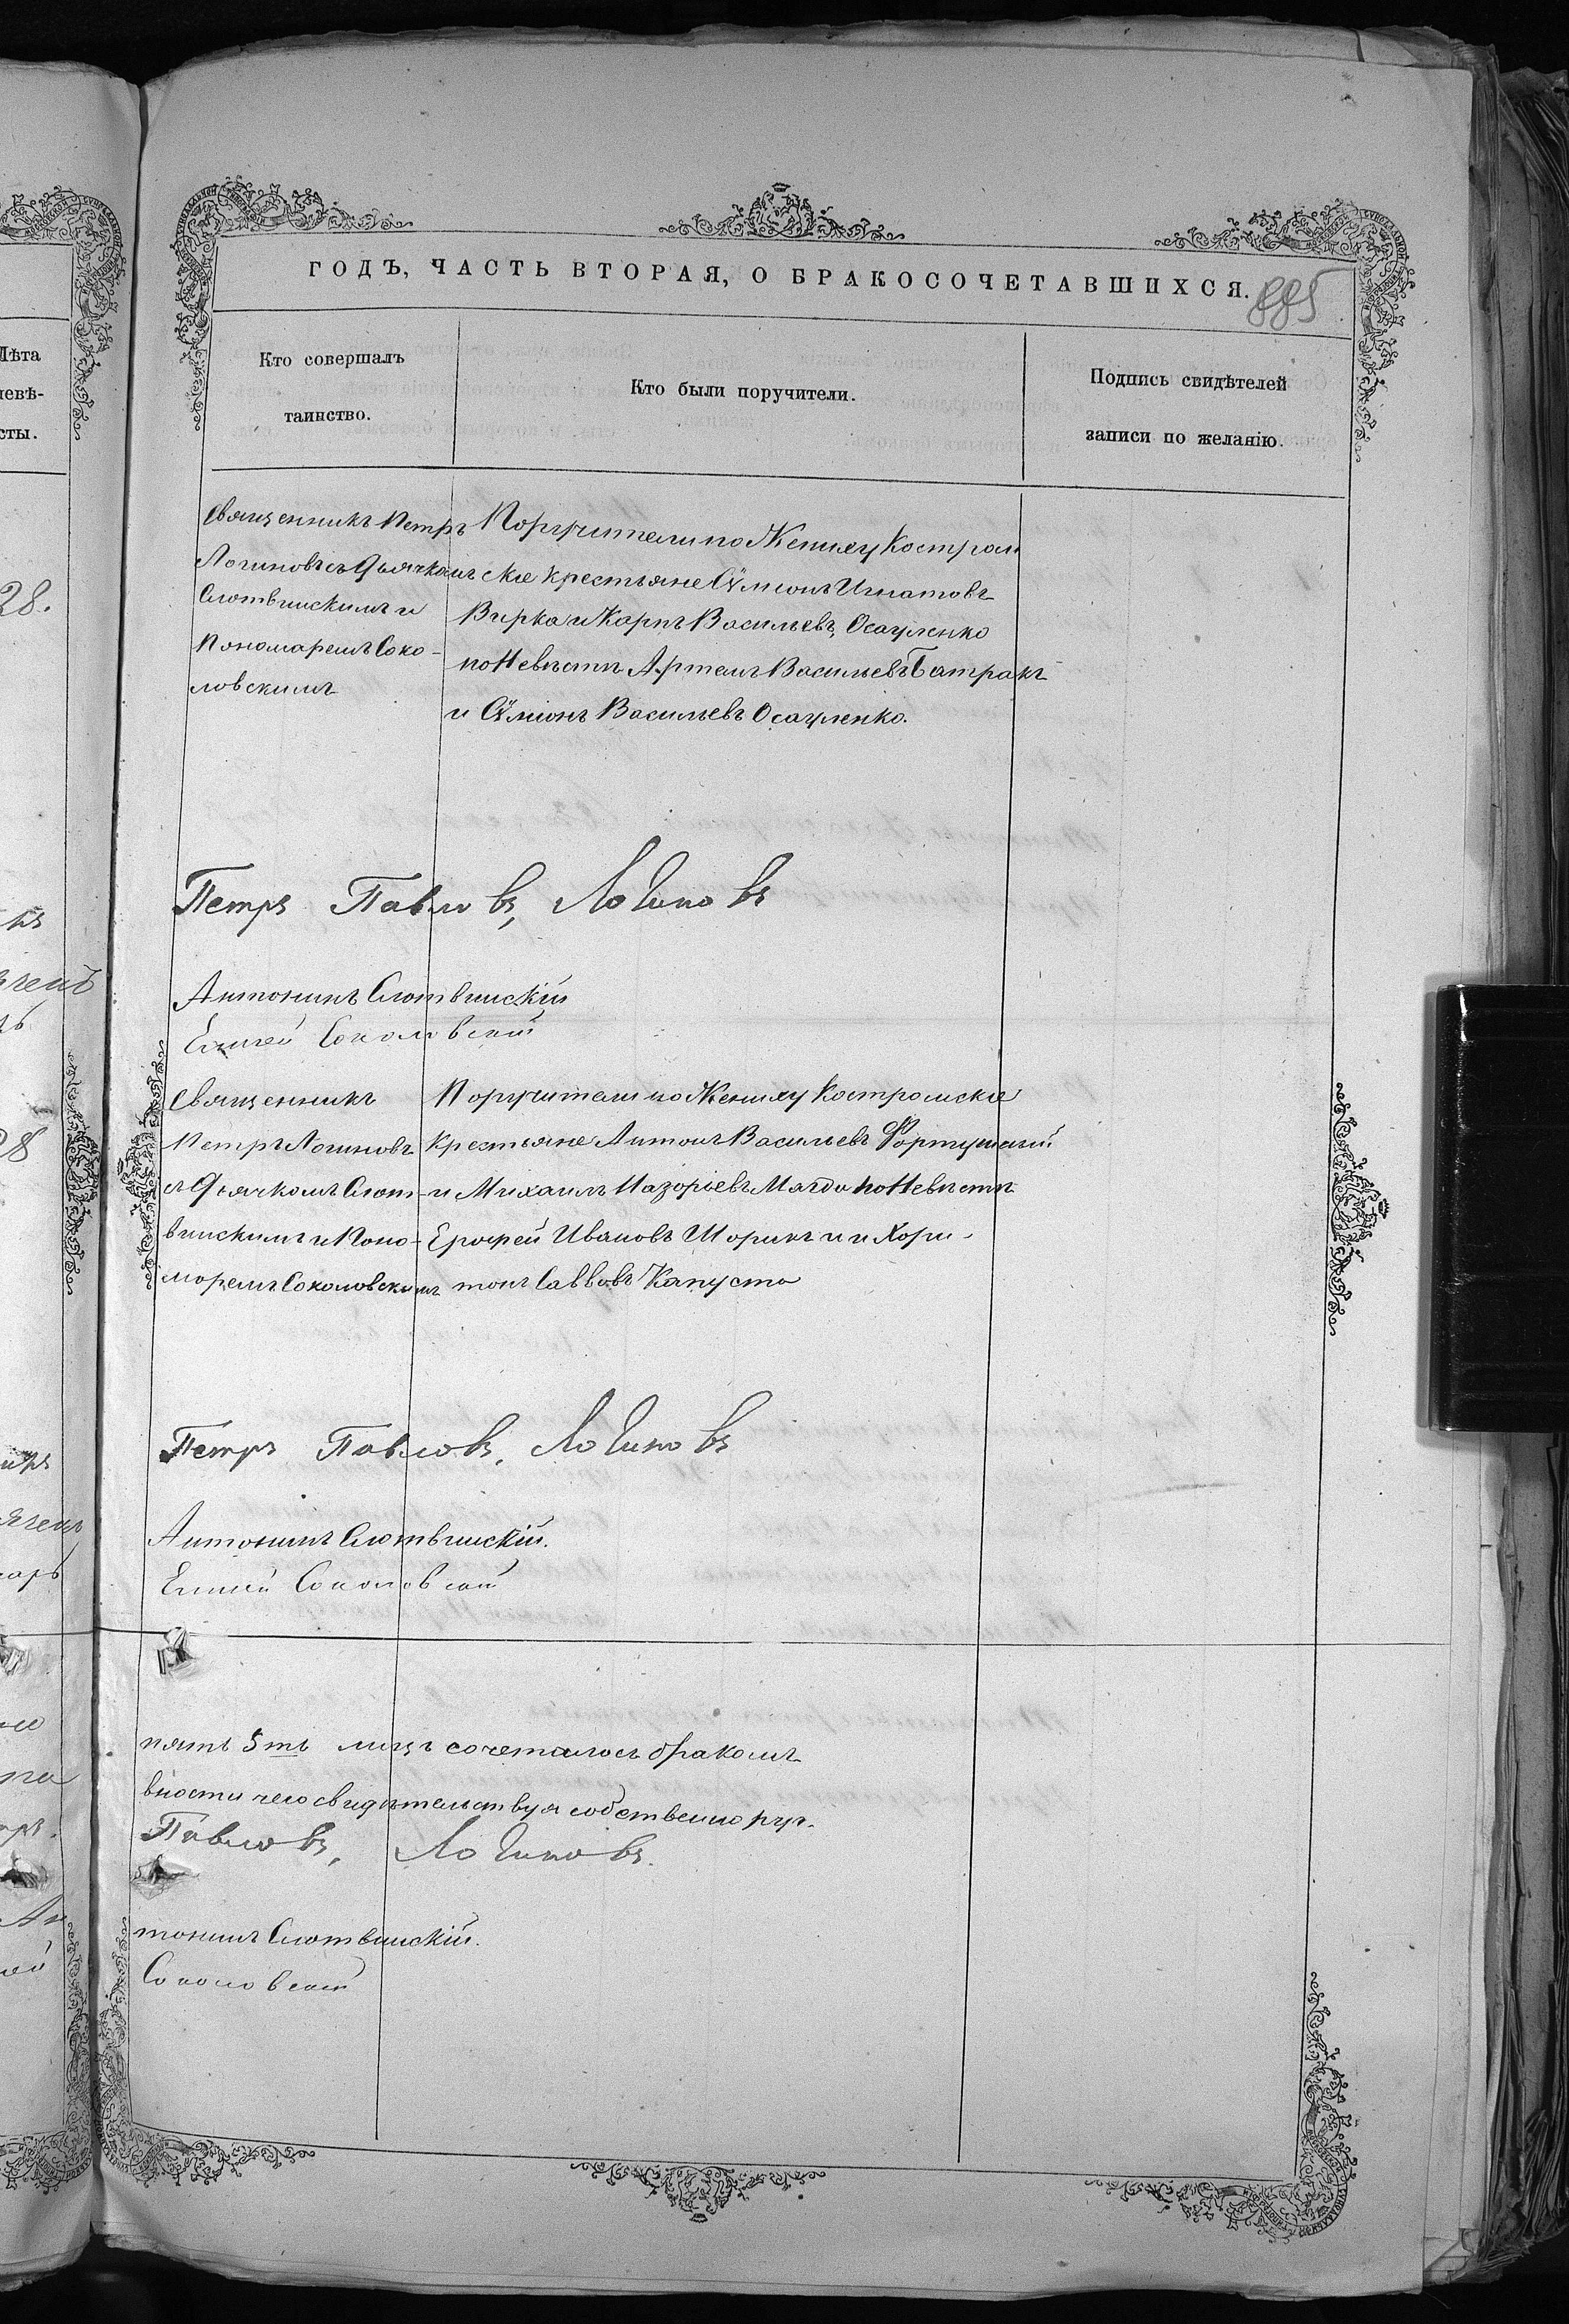 ГОДЪ, ЧАСТЬ ВТОРАЯ, О БРАКОСОЧЕТАВШИХСЯ.
885
Лѣта
невѣ-
сты.
Кто совершалъ
таинство.
Кто были поручители.
Подпись свидѣтелей
записи по желанію.
28.
Священникъ Петръ
Логиновъ съ Дьячкомъ
Слотвинскимъ и
Пономаремъ Соко-
ловскимъ
Поручители по Жениху Костром
скіе крестьяне Сѵмеонъ Игнатовъ
Вирка и Карпъ Васильевъ Осауленко
по Невѣстѣ Артемъ Васильевъ Батракъ
и Сѵмеонъ Васильевъ Осауленко.
Петръ Павловъ, Логиновъ
Антонинъ Слотвинскій
Елисей Соколовскій
28
Священникъ
Петръ Логиновъ
съ Дьячкомъ Слот-
винскимъ и Поно-
моремъ Соколовскимъ
Поручители по Жениху Костромскіе
крестьяне Антонъ Васильевъ
и Михаилъ Назоріевъ по Невѣстѣ
Ерофей Ивановъ Шорикъ и и Хари-
тонъ Саввовъ Капуста
Петръ Павловъ, Логиновъ
Антонинъ Слотвинскій.
Елисей Соколовскій
пять 5ть лицъ сочеталось бракомъ
вности чего свидѣтельствуя собственно рук.
Павловъ, Логиновъ.
тонинъ Слотвинскій.
Соколовскій